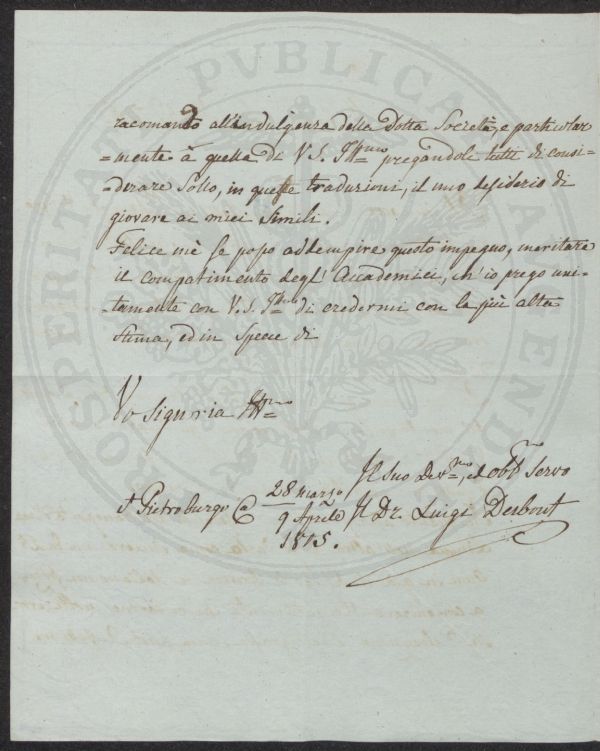 racomando all'indulgenza della Dotta Società, e particolar
=mente à quella di V. S. Ill.mo pregandole tutti di consi=
=derare Solo, in queste traduzioni, il mio desiderio di
giovare ai miei Simili.
Felice mè se posso addempire questo impegno, meritare
il compatimento degl' Accademici, ch'io prego uni=
=tamente con V. S. Ill.mo di credermi con la più alta
stima, ed in Specie di
Vo Siguria Ill.mo
Il Suo Dev.mo, ed obb.mo Servo
S Pietroburgo
28 marzo
9 Aprile
1815.
Il Dr. Luigi Desbout
PROSPERITATI PVBLICAE AVGENDAE